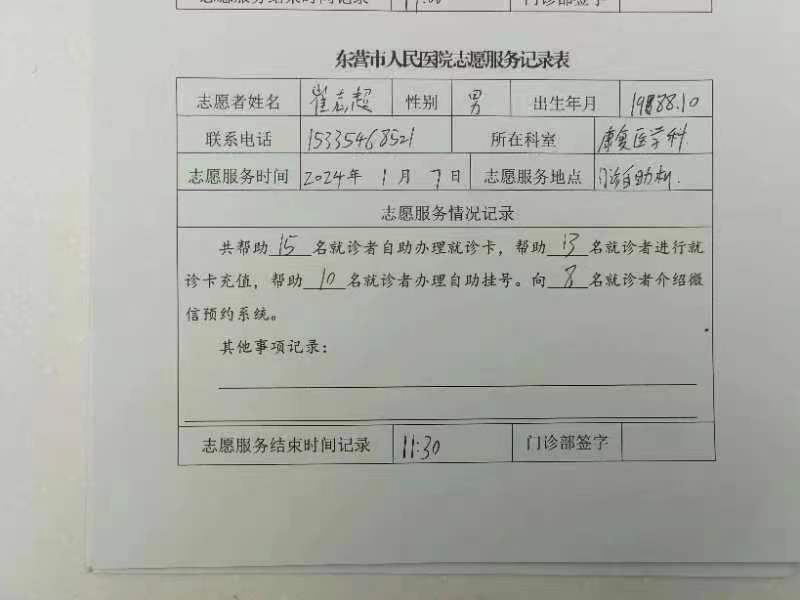 志愿服务结束时间记录 11:00 门诊部签字
东营市人民医院志愿服务记录表
志愿者姓名 崔志超 性别 男 出生年月 1988.10
联系电话 15335468521 所在科室 康复医学科
志愿服务时间 2024年 1月 7日 志愿服务地点 门诊自助机.
志愿服务情况记录
共帮助15名就诊者自助办理就诊卡,帮助13名就诊者进行就
诊卡充值,帮助10名就诊者办理自助挂号。向8名就诊者介绍微
信预约系统。
其他事项记录:
志愿服务结束时间记录 11:30 门诊部签字